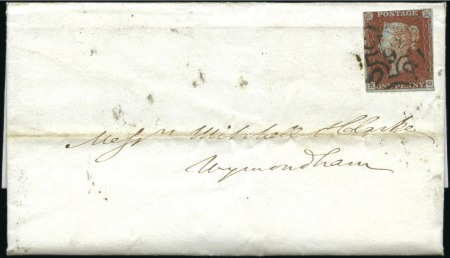 POSTAGE
ONE PENNY
Messrs Mitchell & Clarke
Wymondham